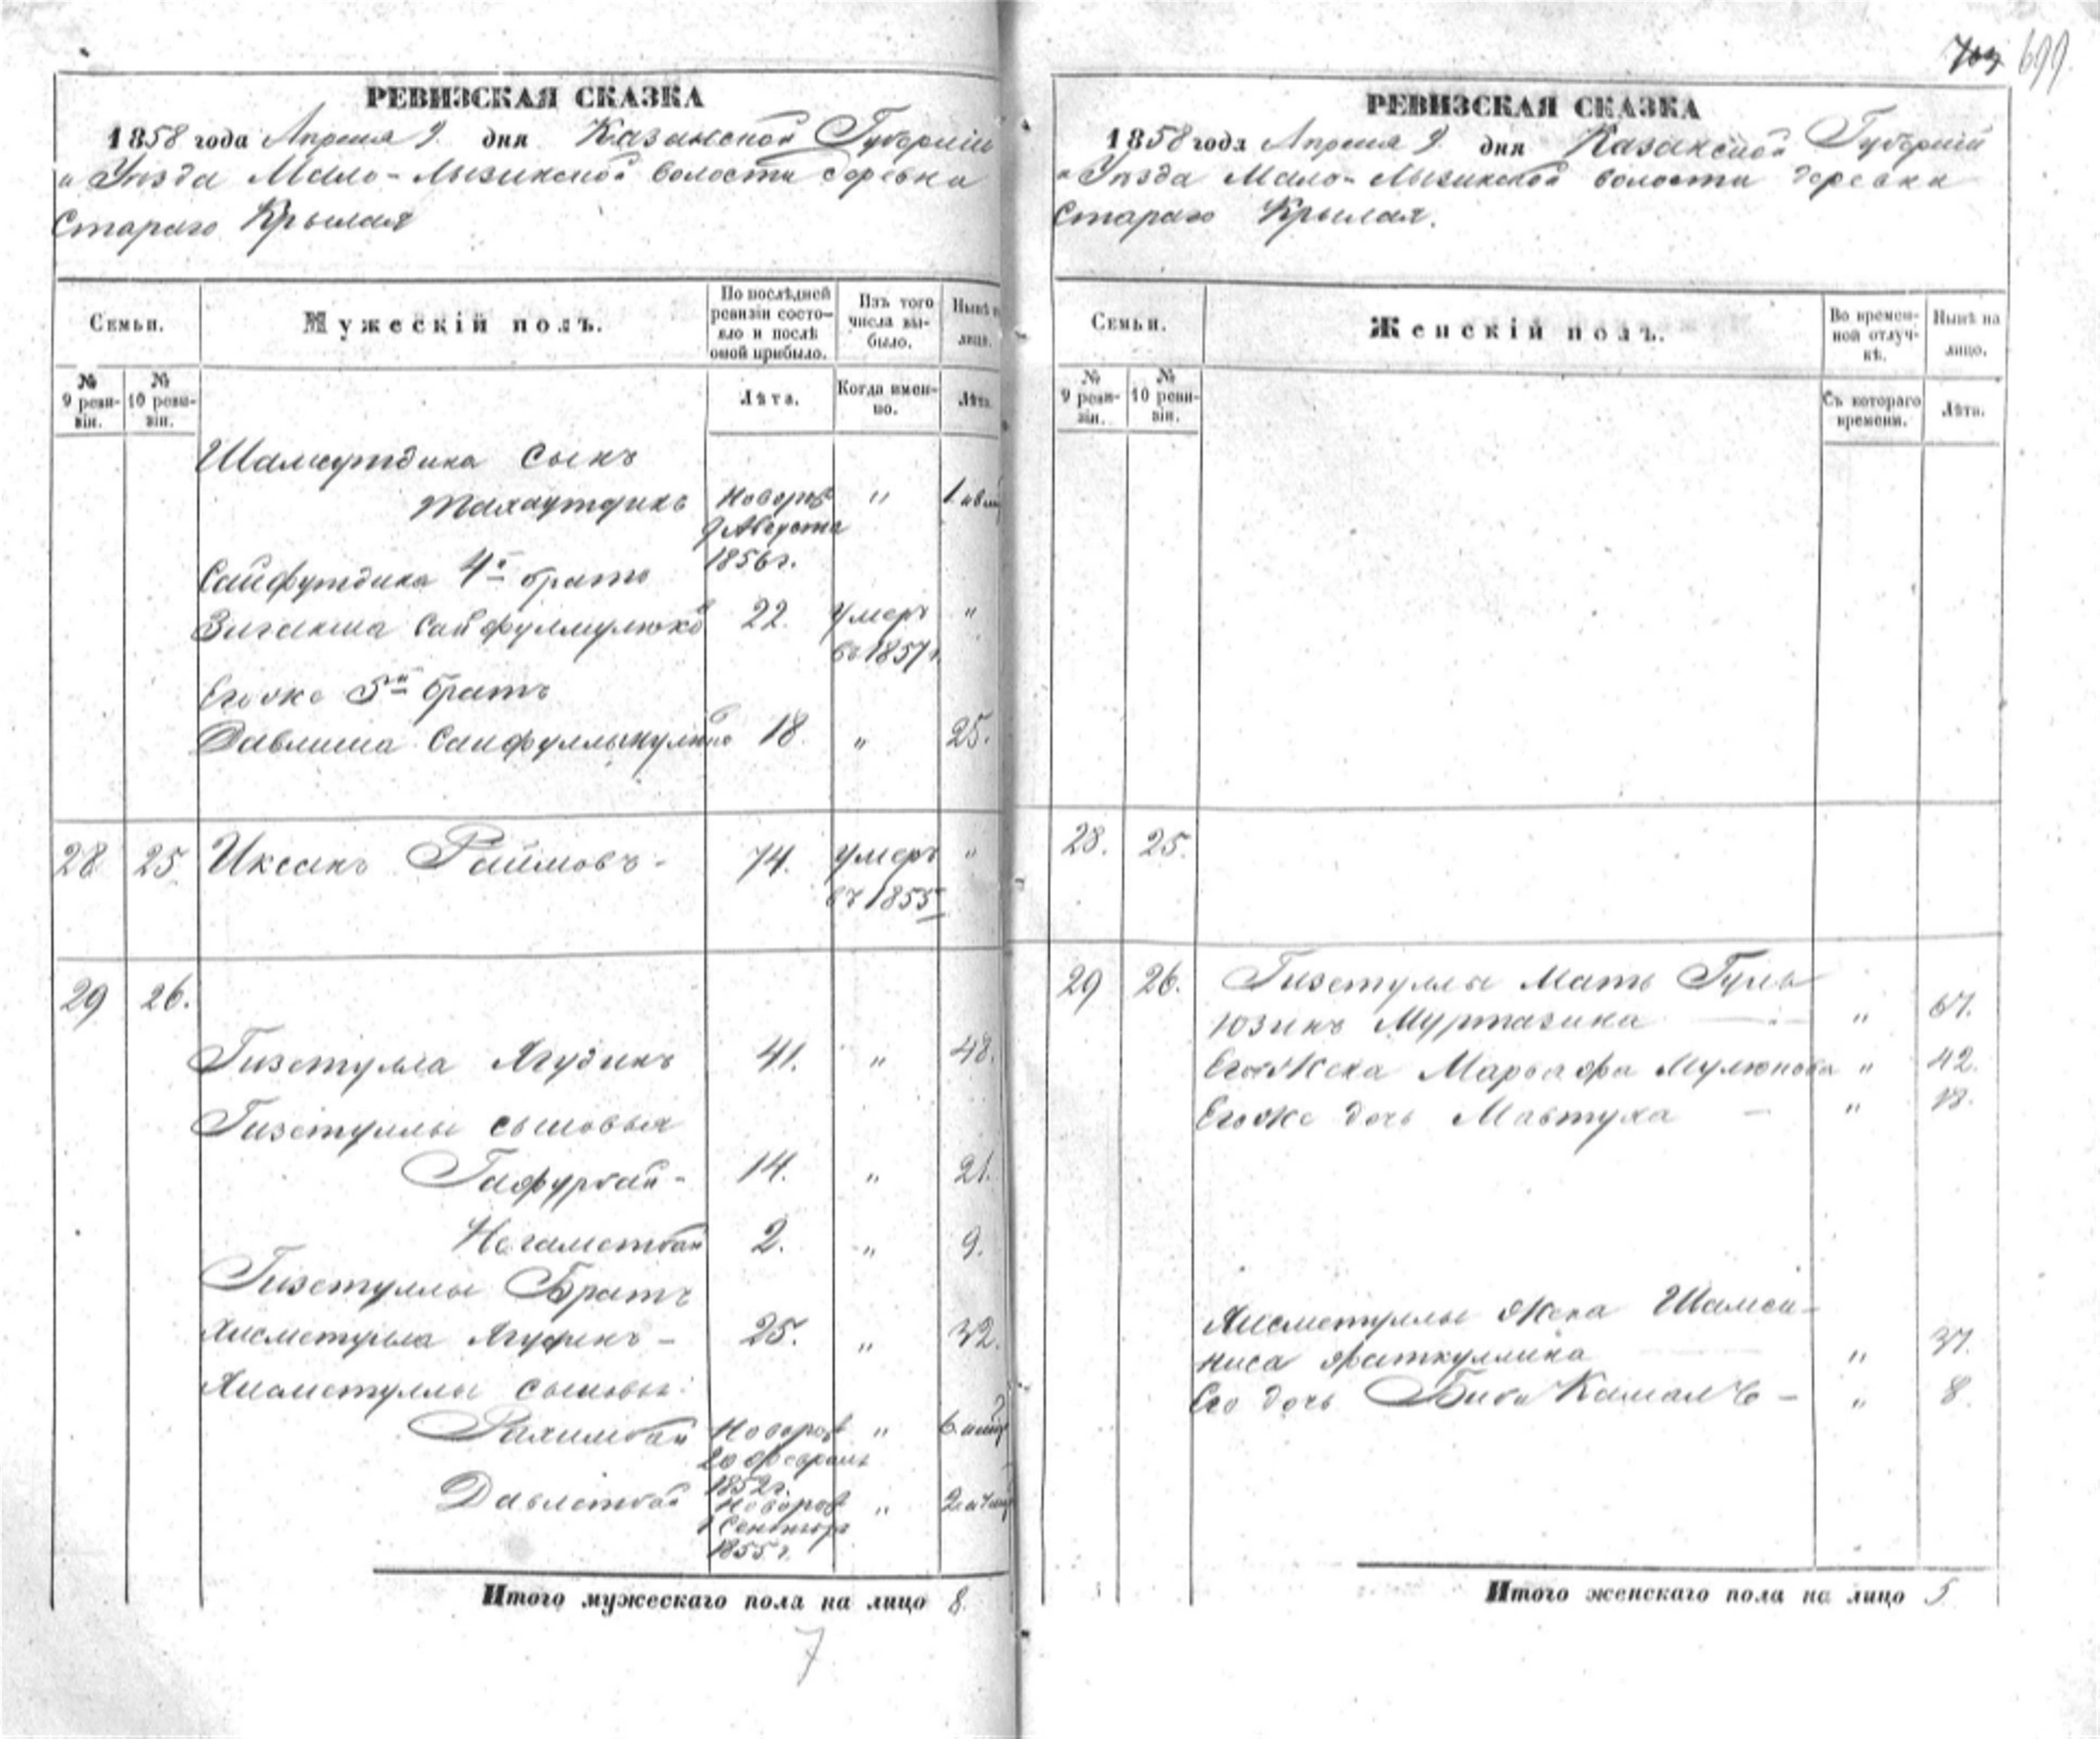 699
РЕВИЗСКАЯ СКАЗКА
1858 года Апреля 9. дня Казанской Губернiи
и Уѣзда Мало-Лызинской волости деревни
Стараго Крылая
Семьи.
Мужескiй полъ.
По послѣдней ревизiи состояло и послѣ оной прибыло.
Изъ того числа выбыло.
Нынѣ на лицо.
№ 9 ревизiи.
№ 10 ревизiи.
Лѣта.
Когда именно.
Лѣта.
Шамсутдина сынъ
новорож "
9 Августа
1856г.
Сайфутдина 4й братъ
22. умеръ "
въ 1857г.
Его же 5й братъ
Давлиша 18 " 25.
28 25 Иксанъ Раимовъ- 74. умеръ "
въ 1855
29 26.
Гизетулла Ягудинъ 41. " 48.
Гизетуллы сыновья
Гафурбай- 14. " 21.
Негаметбай 2. " 9.
Гизетуллы Братъ
Хисметулла Ягудинъ- 25. " 32.
Хисметуллы сыновья:
Рахимбай Новорож "
20 февраля
1852г.
Давлетбай Новорож "
Сентября
1855г.
Итого мужескаго пола на лицо 8.
7
РЕВИЗСКАЯ СКАЗКА
1858 года Апреля 9 дня Казанской Губернiи
и Уѣзда Мало-Лызинской волости деревни
Стараго Крылая.
Семьи.
Женскiй полъ.
Во временной отлучкѣ.
Нынѣ на лицо.
№ 9 ревизiи.
№ 10 ревизiи.
Съ котораго времени.
Лѣта.
28. 25.
29 26. Гизетуллы Мать Гуль
юзинъ Муртазина " 67.
Его жена " 42.
Его же дочь Мавтуха — "
Хисметуллы жена Шамси-
ниса Фаткуллина "
Его дочь Биби Камалъ - " 8.
Итого женскаго пола на лицо 5